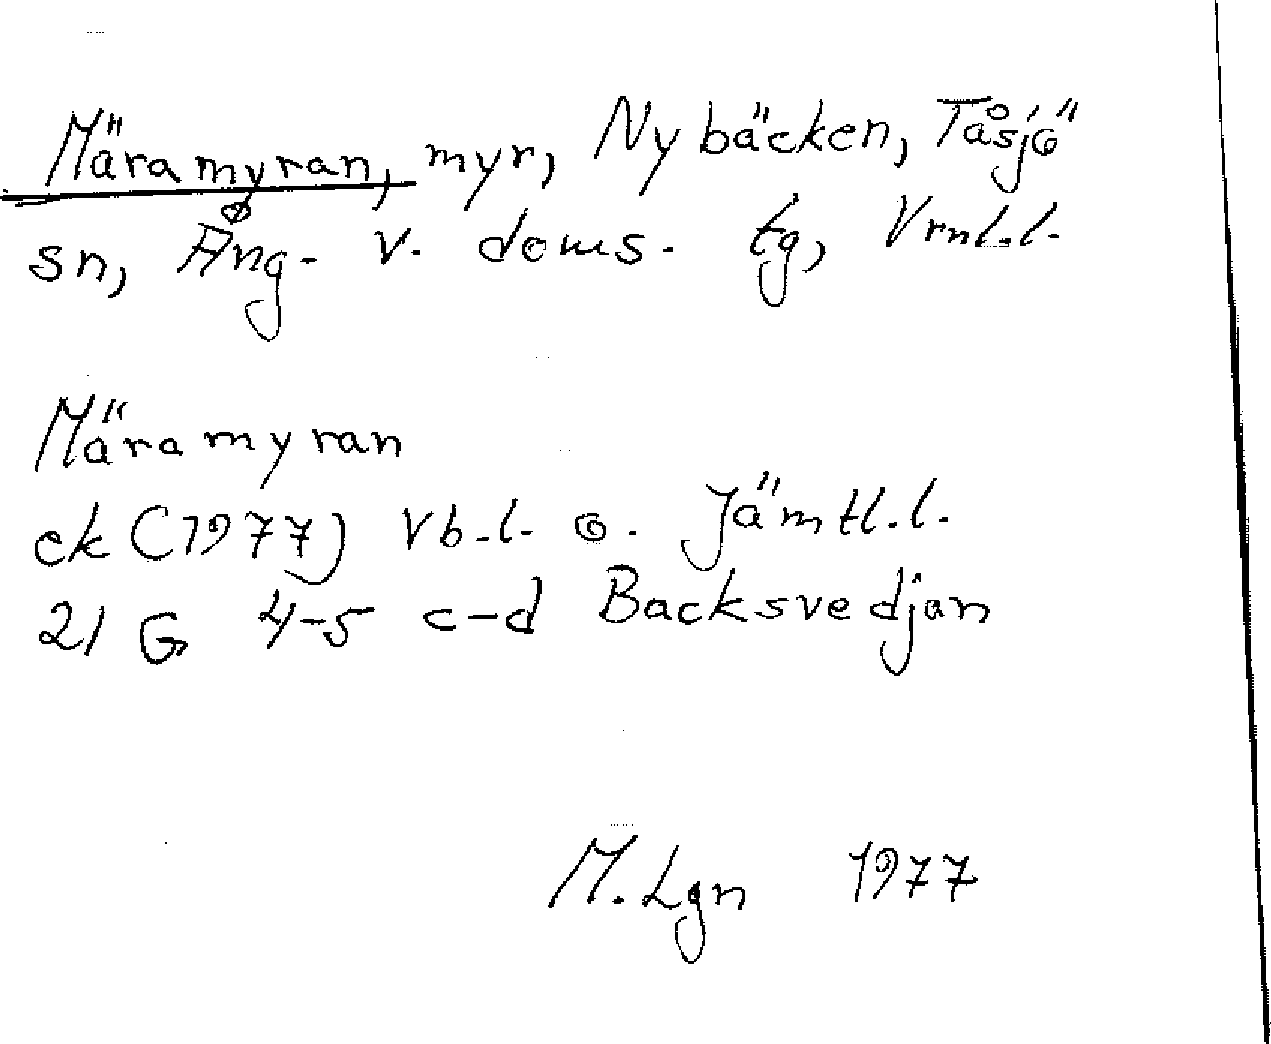 Märamyran, myr, Nybäcken, Tåsjö
sn, Ång. v. doms. tg, Vrnl.l.
Märamyran
ek (1977) Vb.l. o. Jämtl.l.
21 G 4-5 c-d Backsvedjan
M. Lgn 1977